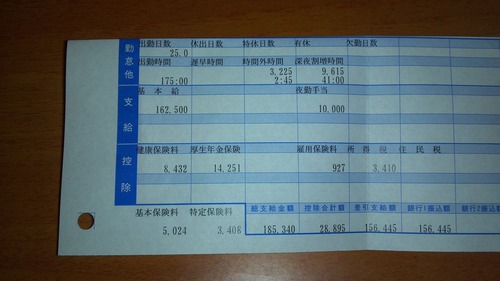 勤怠他
出勤日数 休出日数 特休日数 有休 欠勤日数
25.0
出勤時間 遅早時間 時間外時間 深夜割増時間
3,225 9,615
175:00 2:45 41:00
支給
基本給 夜勤手当
162,500 10,000
控除
健康保険料 厚生年金保険 雇用保険料 所得税 住民税
8,432 14,251 927 3,410
基本保険料 特定保険料 総支給金額 控除合計額 差引支給額 銀行1振込額 銀行2振込
5,024 3,408 185,340 28,895 156,445 156,445